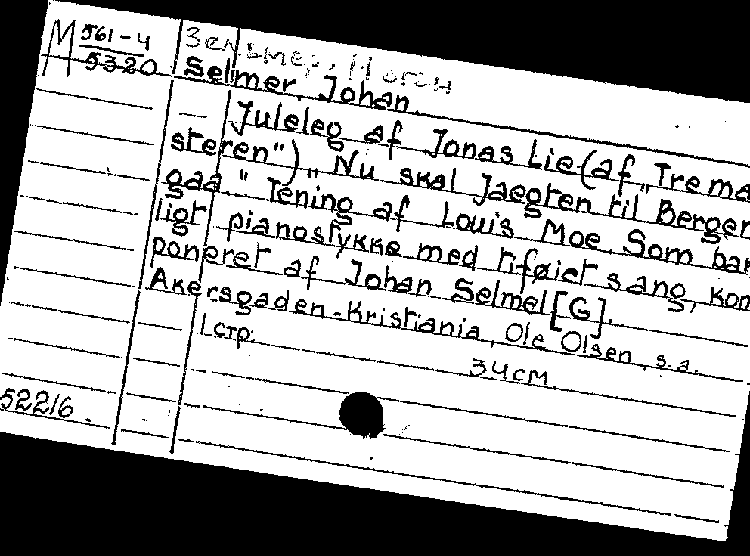 М 561-4
5320
Зельмер, Иоган
Selmer, Johan.
— Juleleg af Jonas Lie (af „Trema
steren") „Nu skal Jaegren til Berger
gaa." Tening af Louis Moe. Som bar
ligt pianostykke med tiføiet sang, kom
poneret af Johan Selmel [G].
Akersgaden-Kristiania, Ole Olsen, s.a.
1 стр.
34 см.
52216.